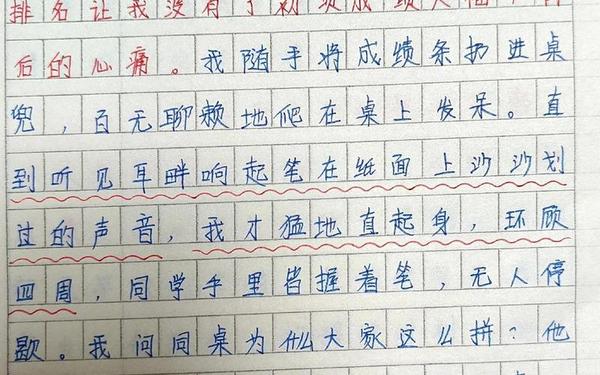 排名让我没有了初
后的心痛。我随手将成绩条扔进桌
兜，百无聊赖地爬在桌上发呆。直
到听见耳畔响起笔在纸面上沙沙划
过的声音，我才猛地直起身，环顾
四周，同学手里皆握着笔，无人停
歇。我问同桌为什么大家这么拼？他